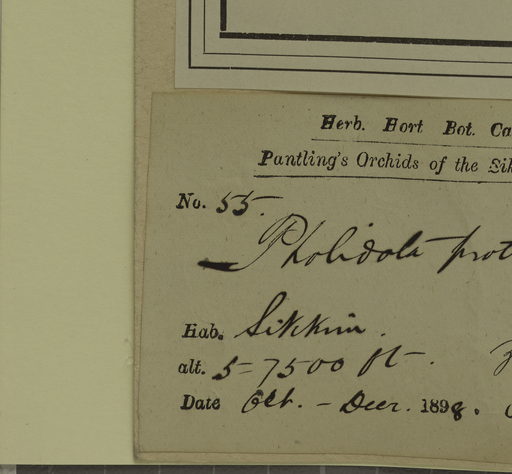 Herb. Hort Bot. Ca
Pantling's Orchids of the Sik
No. 55.
Pholidota prot
Hab. Sikkim.
alt. 5-7500 ft.
Date Oct. - Decr. 1898.